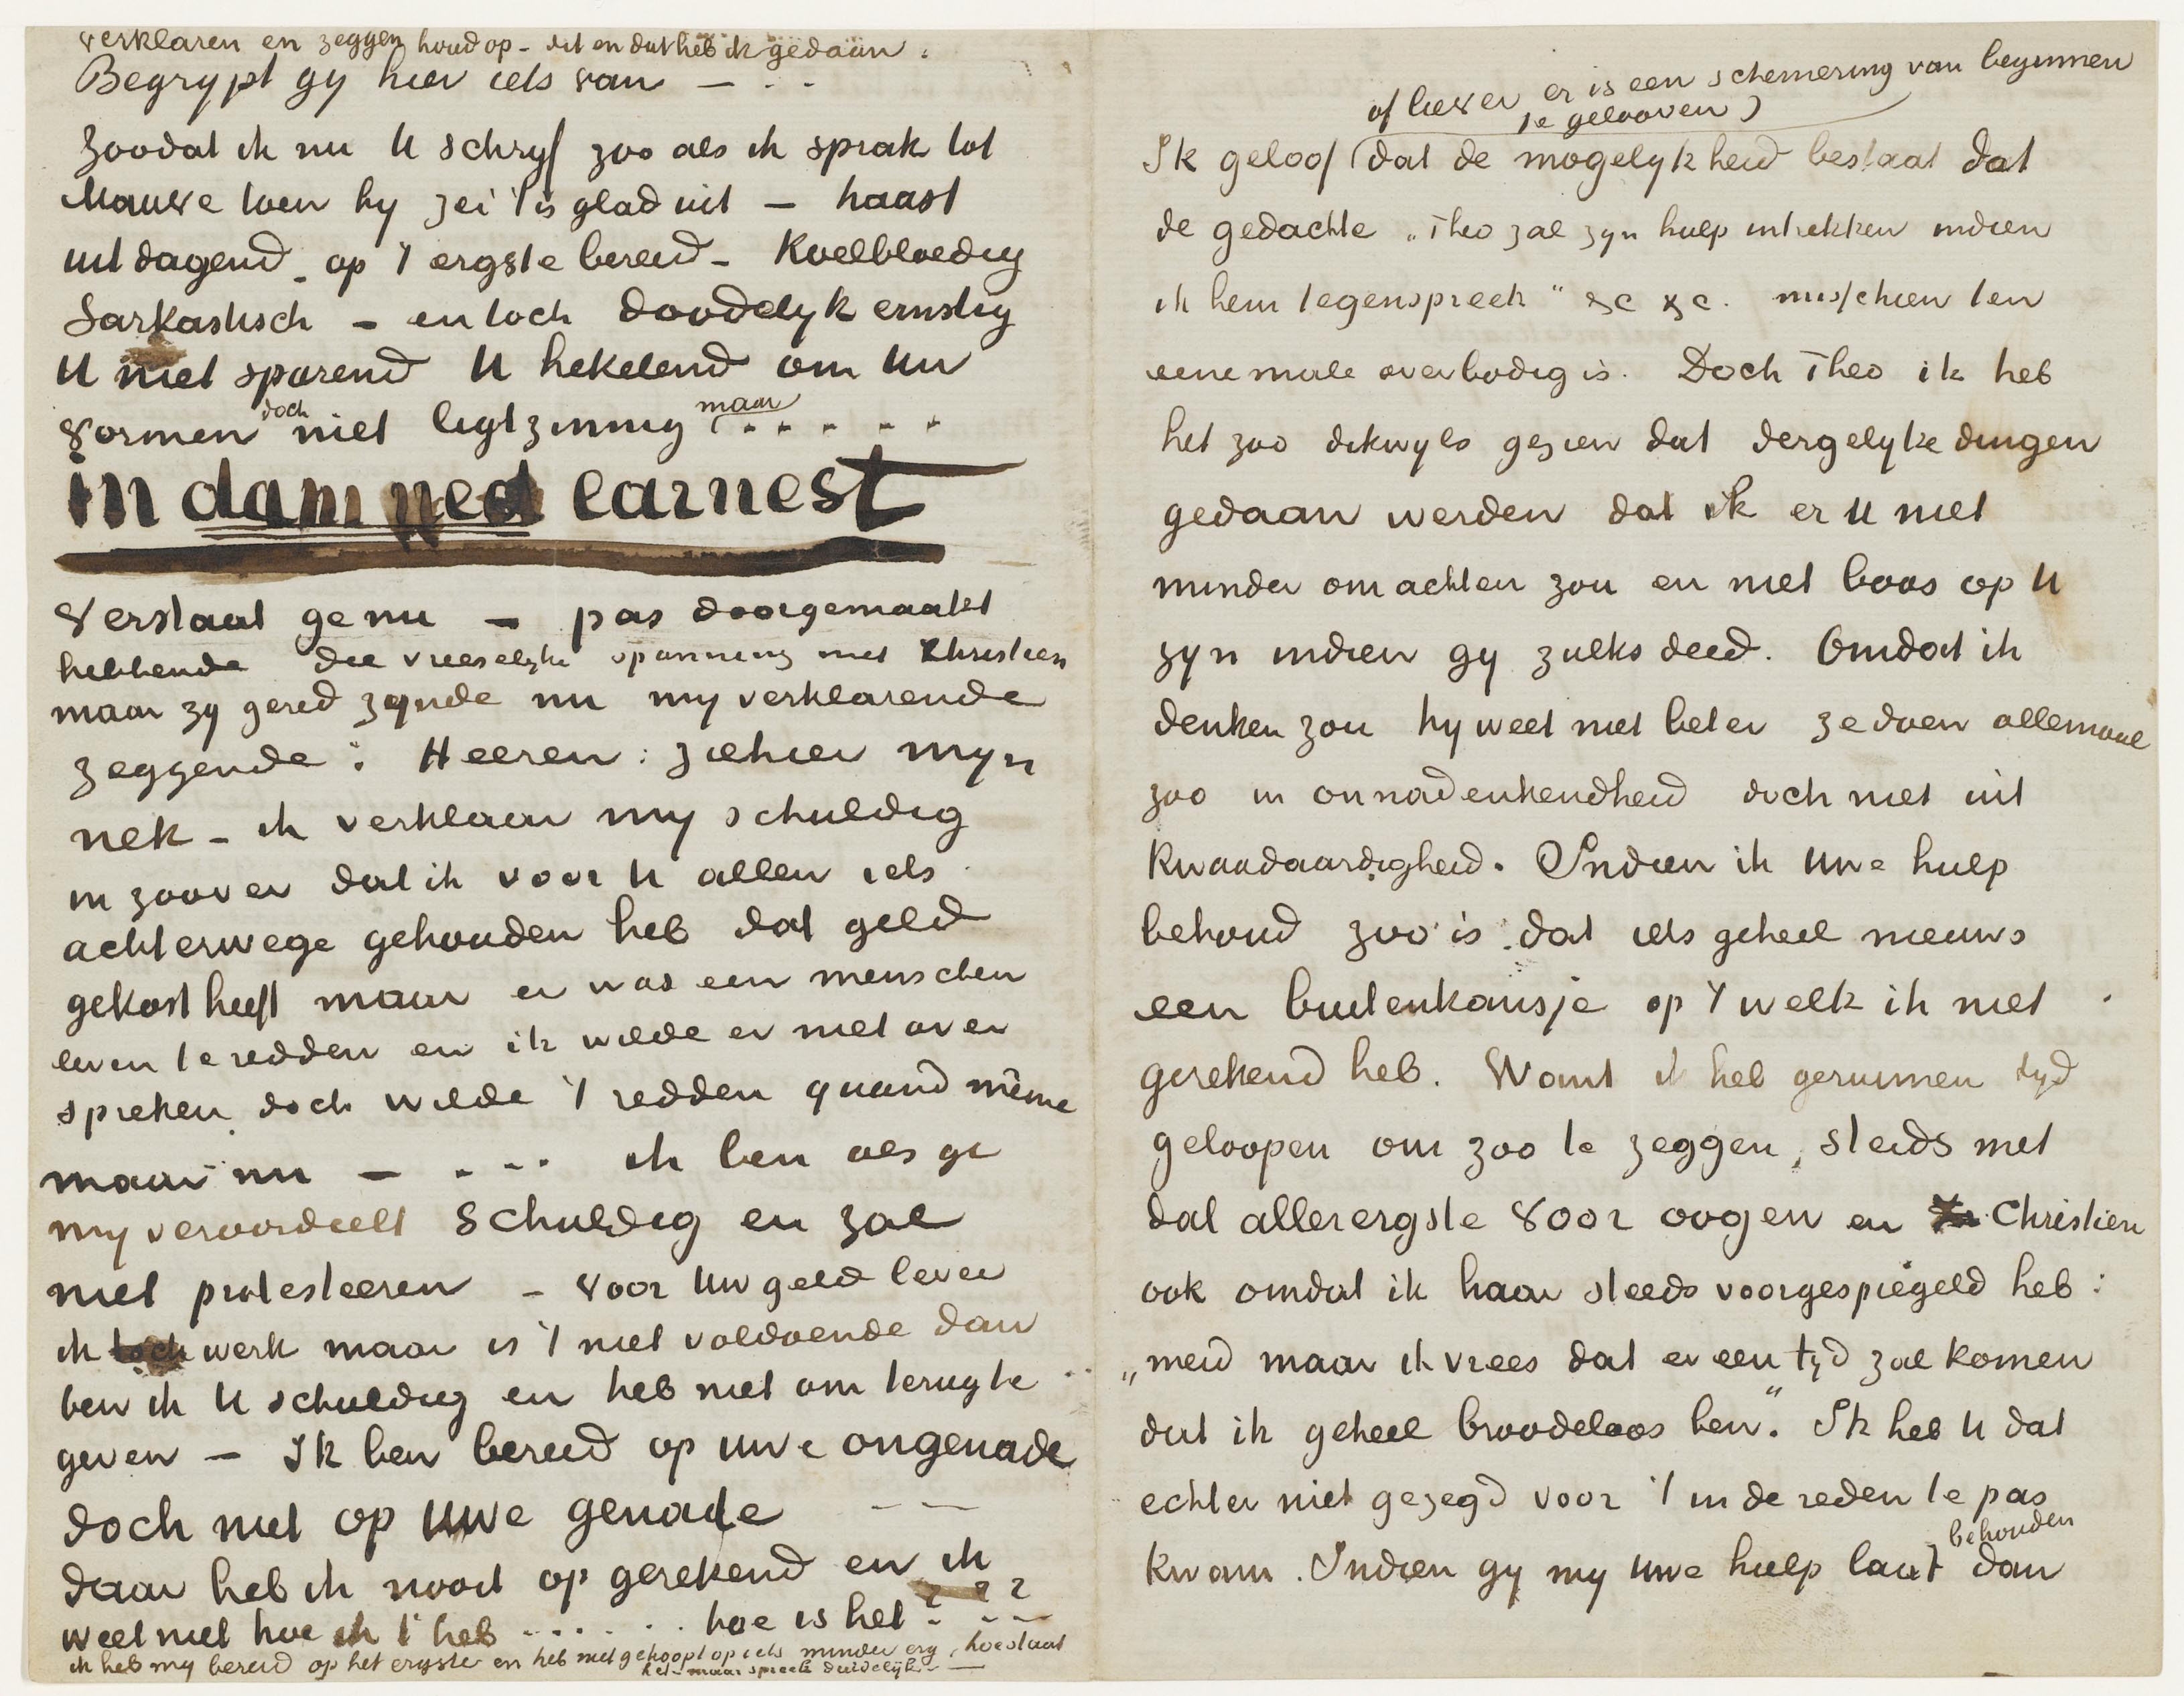 verklaren en zeggen houd op – dit en dat heb ik gedaan.
Begrypt gy hier iets van — . .
Zoodat ik nu U schryf zoo als ik sprak tot
Mauve toen hy zei 't is glad uit — haast
uitdagend – op 't ergste bereid – Koelbloedig
Sarkastisch – en toch doodelyk ernstig
U niet sparend U hekelend om Uw
vormen doch niet ligtzinnig maar . . . . .
in damned earnest
Verstaat ge nu – pas doorgemaakt
hebbende die vreeselyke spanning met Christien
maar zy gered zynde nu my verklarende
zeggende: Heeren: ziehier myn
nek – ik verklaar my schuldig
in zoover dat ik voor U allen iets
achterwege gehouden heb dat geld
gekost heeft maar er was een menschen
leven te redden en ik wilde er niet over
spreken doch wilde 't redden quand même
maar nu — . . . . ik ben als ge
my veroordeelt schuldig en zal
niet protesteeren – voor Uw geld lever
ik toch werk maar is 't niet voldoende dan
ben ik U schuldig en heb niet om terug te
geven — Ik ben bereid op uwe ongenade
doch niet op Uwe genade — —
daar heb ik nooit op gerekend en ik
weet niet hoe ik 't heb . . . . . . hoe is het ? ? ?
ik heb my bereid op het ergste en heb niet gehoopt op iets minder erg, hoe staat
het – maar spreek duidelyk – —
of liever er is een schemering van beginnen
te gelooven)
Ik geloof (dat de mogelykheid bestaat dat
de gedachte „Theo zal zyn hulp intrekken indien
ik hem tegenspreek" &c &c. misschien ten
eenemale overbodig is. Doch Theo ik heb
het zoo dikwyls gezien dat dergelyke dingen
gedaan werden dat ik er U niet
minder om achten zou en niet boos op U
zyn indien gy zulks deed. Omdat ik
denken zou hy weet niet beter ze doen allemaal
zoo in onnadenkendheid doch niet uit
kwaadaardigheid. Indien ik Uwe hulp
behoud zoo is dat iets geheel nieuws
een buitenkansje op 't welk ik niet
gerekend heb. Want ik heb geruimen tyd
geloopen om zoo te zeggen, steeds met
dat allerergste voor oogen en Christien
ook omdat ik haar steeds voorgespiegeld heb:
„meid maar ik vrees dat er een tyd zal komen
dat ik geheel broodeloos ben". Ik heb U dat
echter niet gezegd voor 't in de reden te pas
kwam. Indien gy my Uwe hulp laat behouden dan